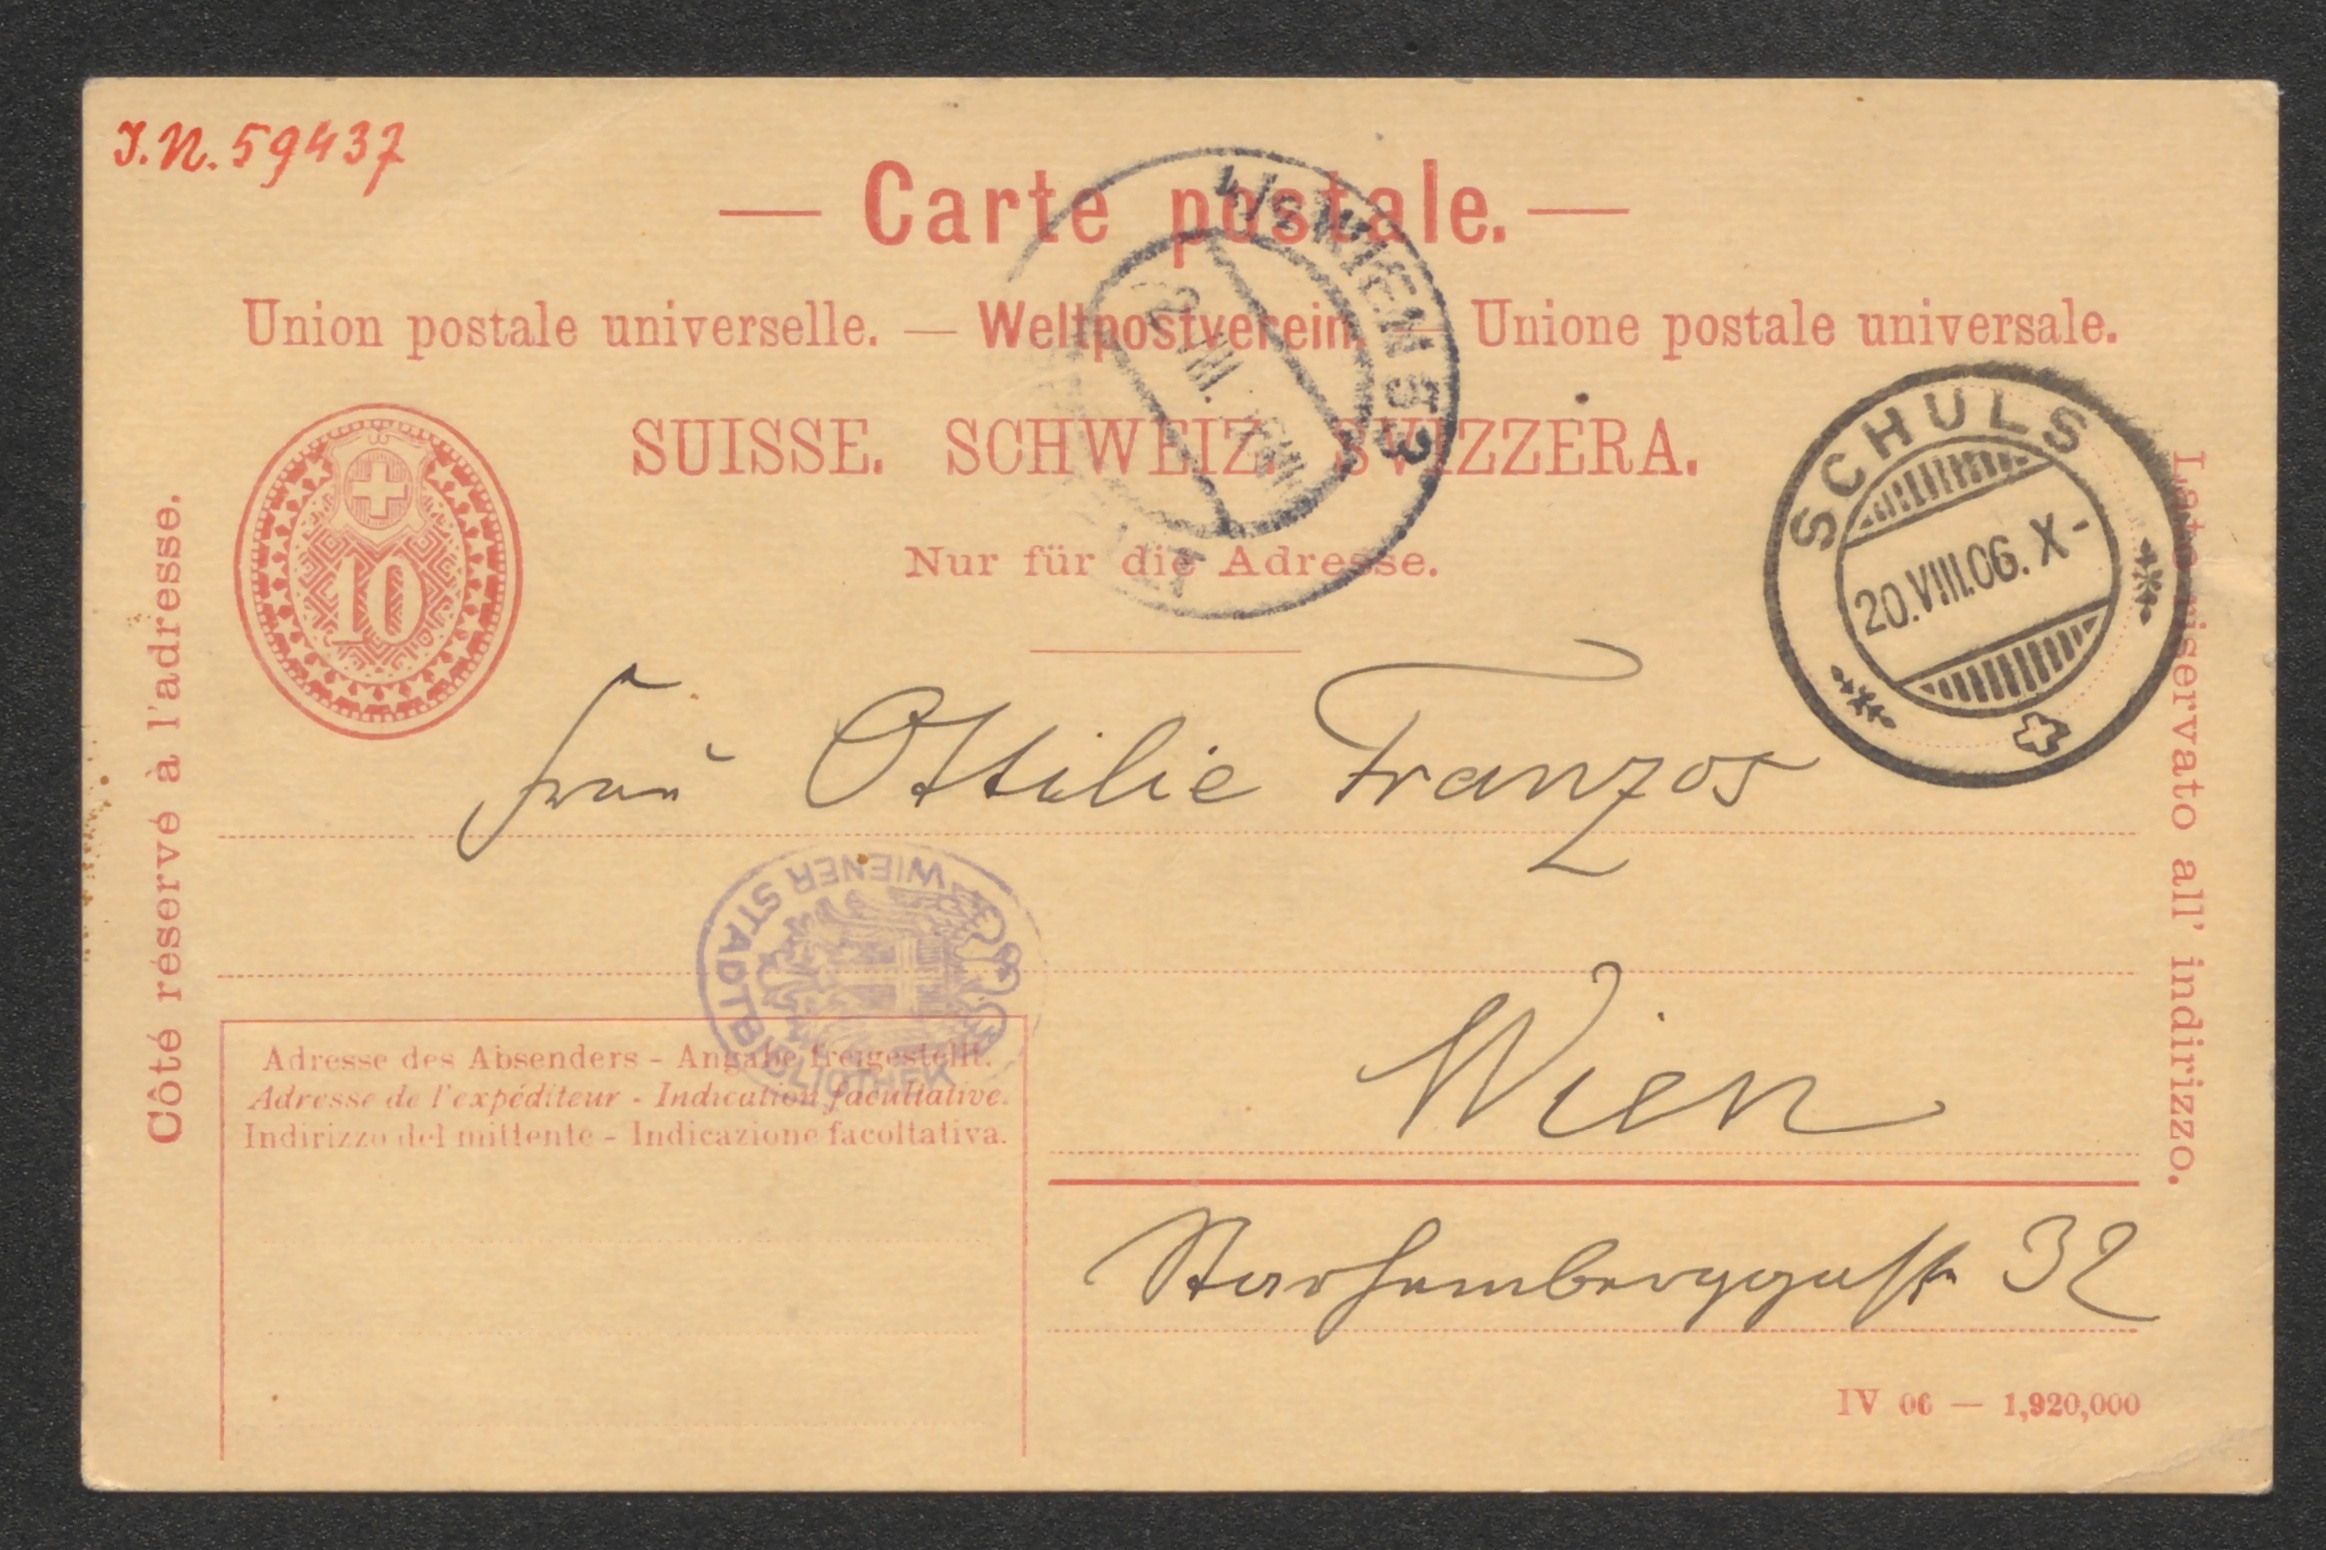 J.N. 59437
— Carte postale. —
Union postale universelle. — Weltpostverein. — Unione postale universale.
SUISSE. SCHWEIZ. SVIZZERA.
Nur für die Adresse.
10
4/1 WIEN 53
SCHULS
20.VIII.06. X-
Côté réservé à l'adresse.
Lato riservato all' indirizzo.
Frau Ottilie Franzos
WIENER STADTBIBLIOTHEK
Wien
Starhemberggasse 32
Adresse des Absenders - Angabe freigestellt.
Adresse de l'expéditeur - Indication facultative.
Indirizzo del mittente - Indicazione facoltativa.
IV 06 — 1,920,000